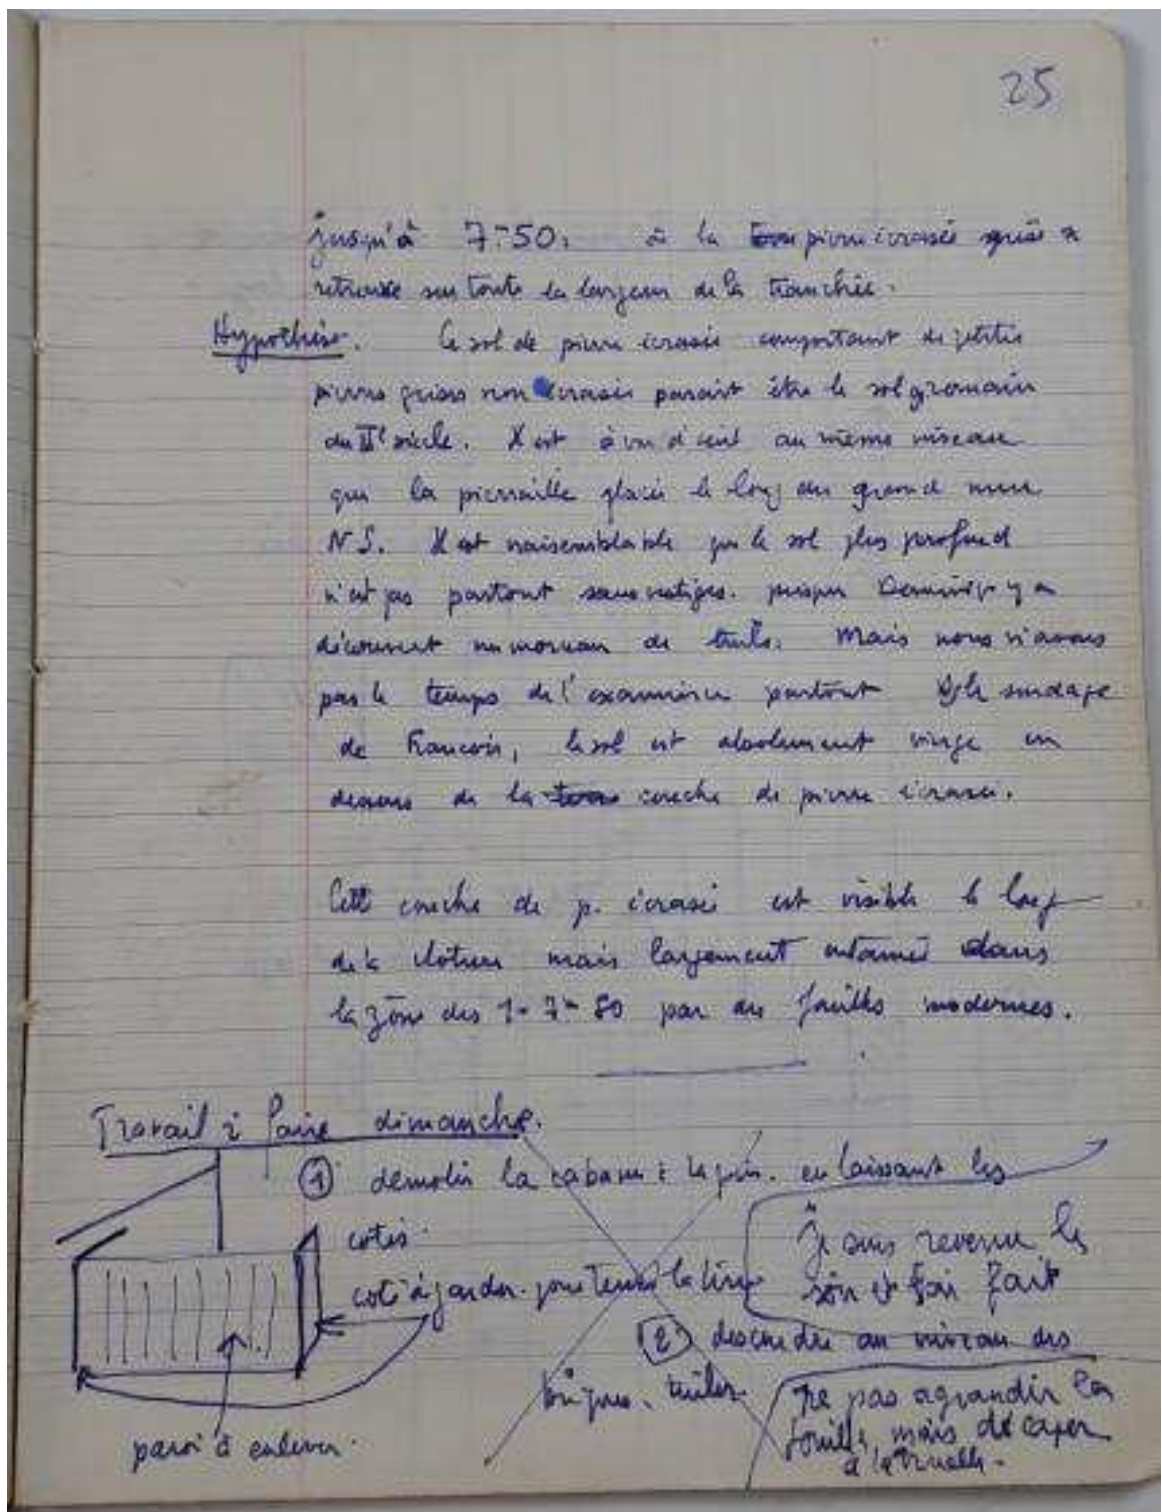 25
jusqu'à 7m50. à la pierre écrasée grise
retrouve sur toute la largeur de la tranchée.
Hypothèse. Le sol de pierre écrasée comportant de petites
pierres grises non écrasées parait être le sol gromain
du IIe siècle. Il est à vue d'oeil au même niveau
que la pierraille placée le long du grand mur
N S. Il est vraisemblable que le sol plus profond
n'est pas partout sans vestiges. puisque y a
découvert un morceau de tuile. Mais nous n'avons
pas le temps de l'examiner partout le sondage
de François, le sol est absolument vierge en
dessous de la couche de pierre écrasée.
Cette couche de p. écrasée est visible le long
de la clôture mais largement entamée dans
la zône des 1 - 7m 50 par des fouilles modernes.
Travail à faire dimanche.
1 démolir la cabane à lapin. en laissant les
cotés.
coté à garder. pour tenir la terre
je suis revenu le
soir et l'ai fait
2 descendre au niveau des
briques, tuiles.
ne pas agrandir la
fouille, mais décaper
à la truelle.
paroi à enlever.